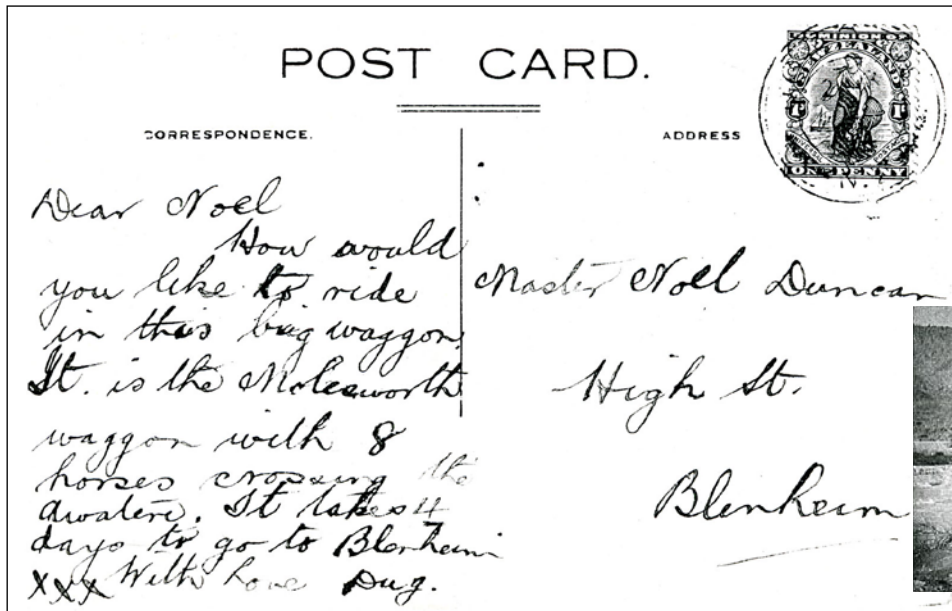 POST CARD.
CORRESPONDENCE.
ADDRESS
DOMINION OF
NEW ZEALAND
ONE PENNY
Dear Noel
How would
you like to ride
in this big waggon.
It. is the Molesworth
waggon with 8
horses crossing the
awatere. It takes 4
days to go to Blenheim
xxx With love Dug.
Master Noel Duncan
High St.
Blenheim